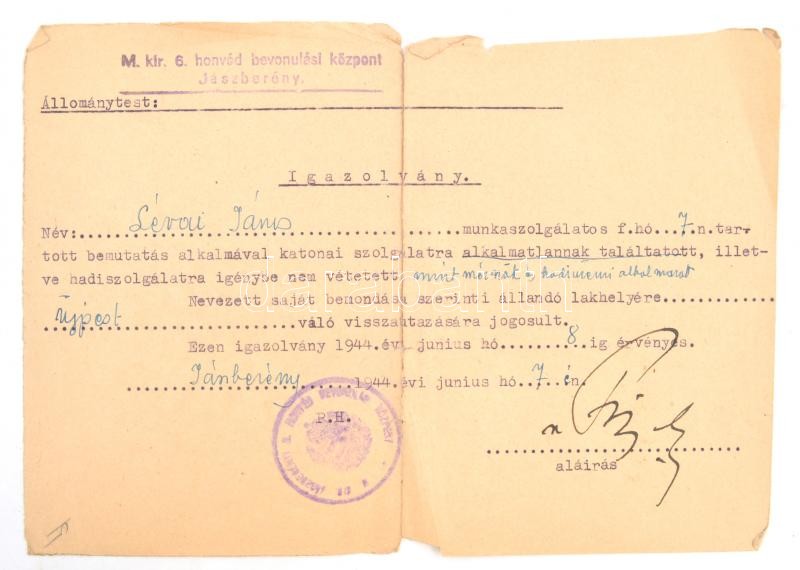 M. kir. 6. honvéd bevonulási központ
Jászberény.
Állománytest:
Igazolvány.
Név: Lévai János munkaszolgálatos f.hó 7.n.tar-
tott bemutatás alkalmával katonai szolgálatra alkalmatlannak találtatott, illet-
ve hadiszolgálatra igénybe nem vétetett mint mérnök
Nevezett saját bemondása szerinti állandó lakhelyére
Újpest való visszautazására jogosult.
Ezen igazolvány 1944.évi junius hó 8 ig érvényes.
Jászberény 1944.évi junius hó 7 én.
P.H.
aláirás